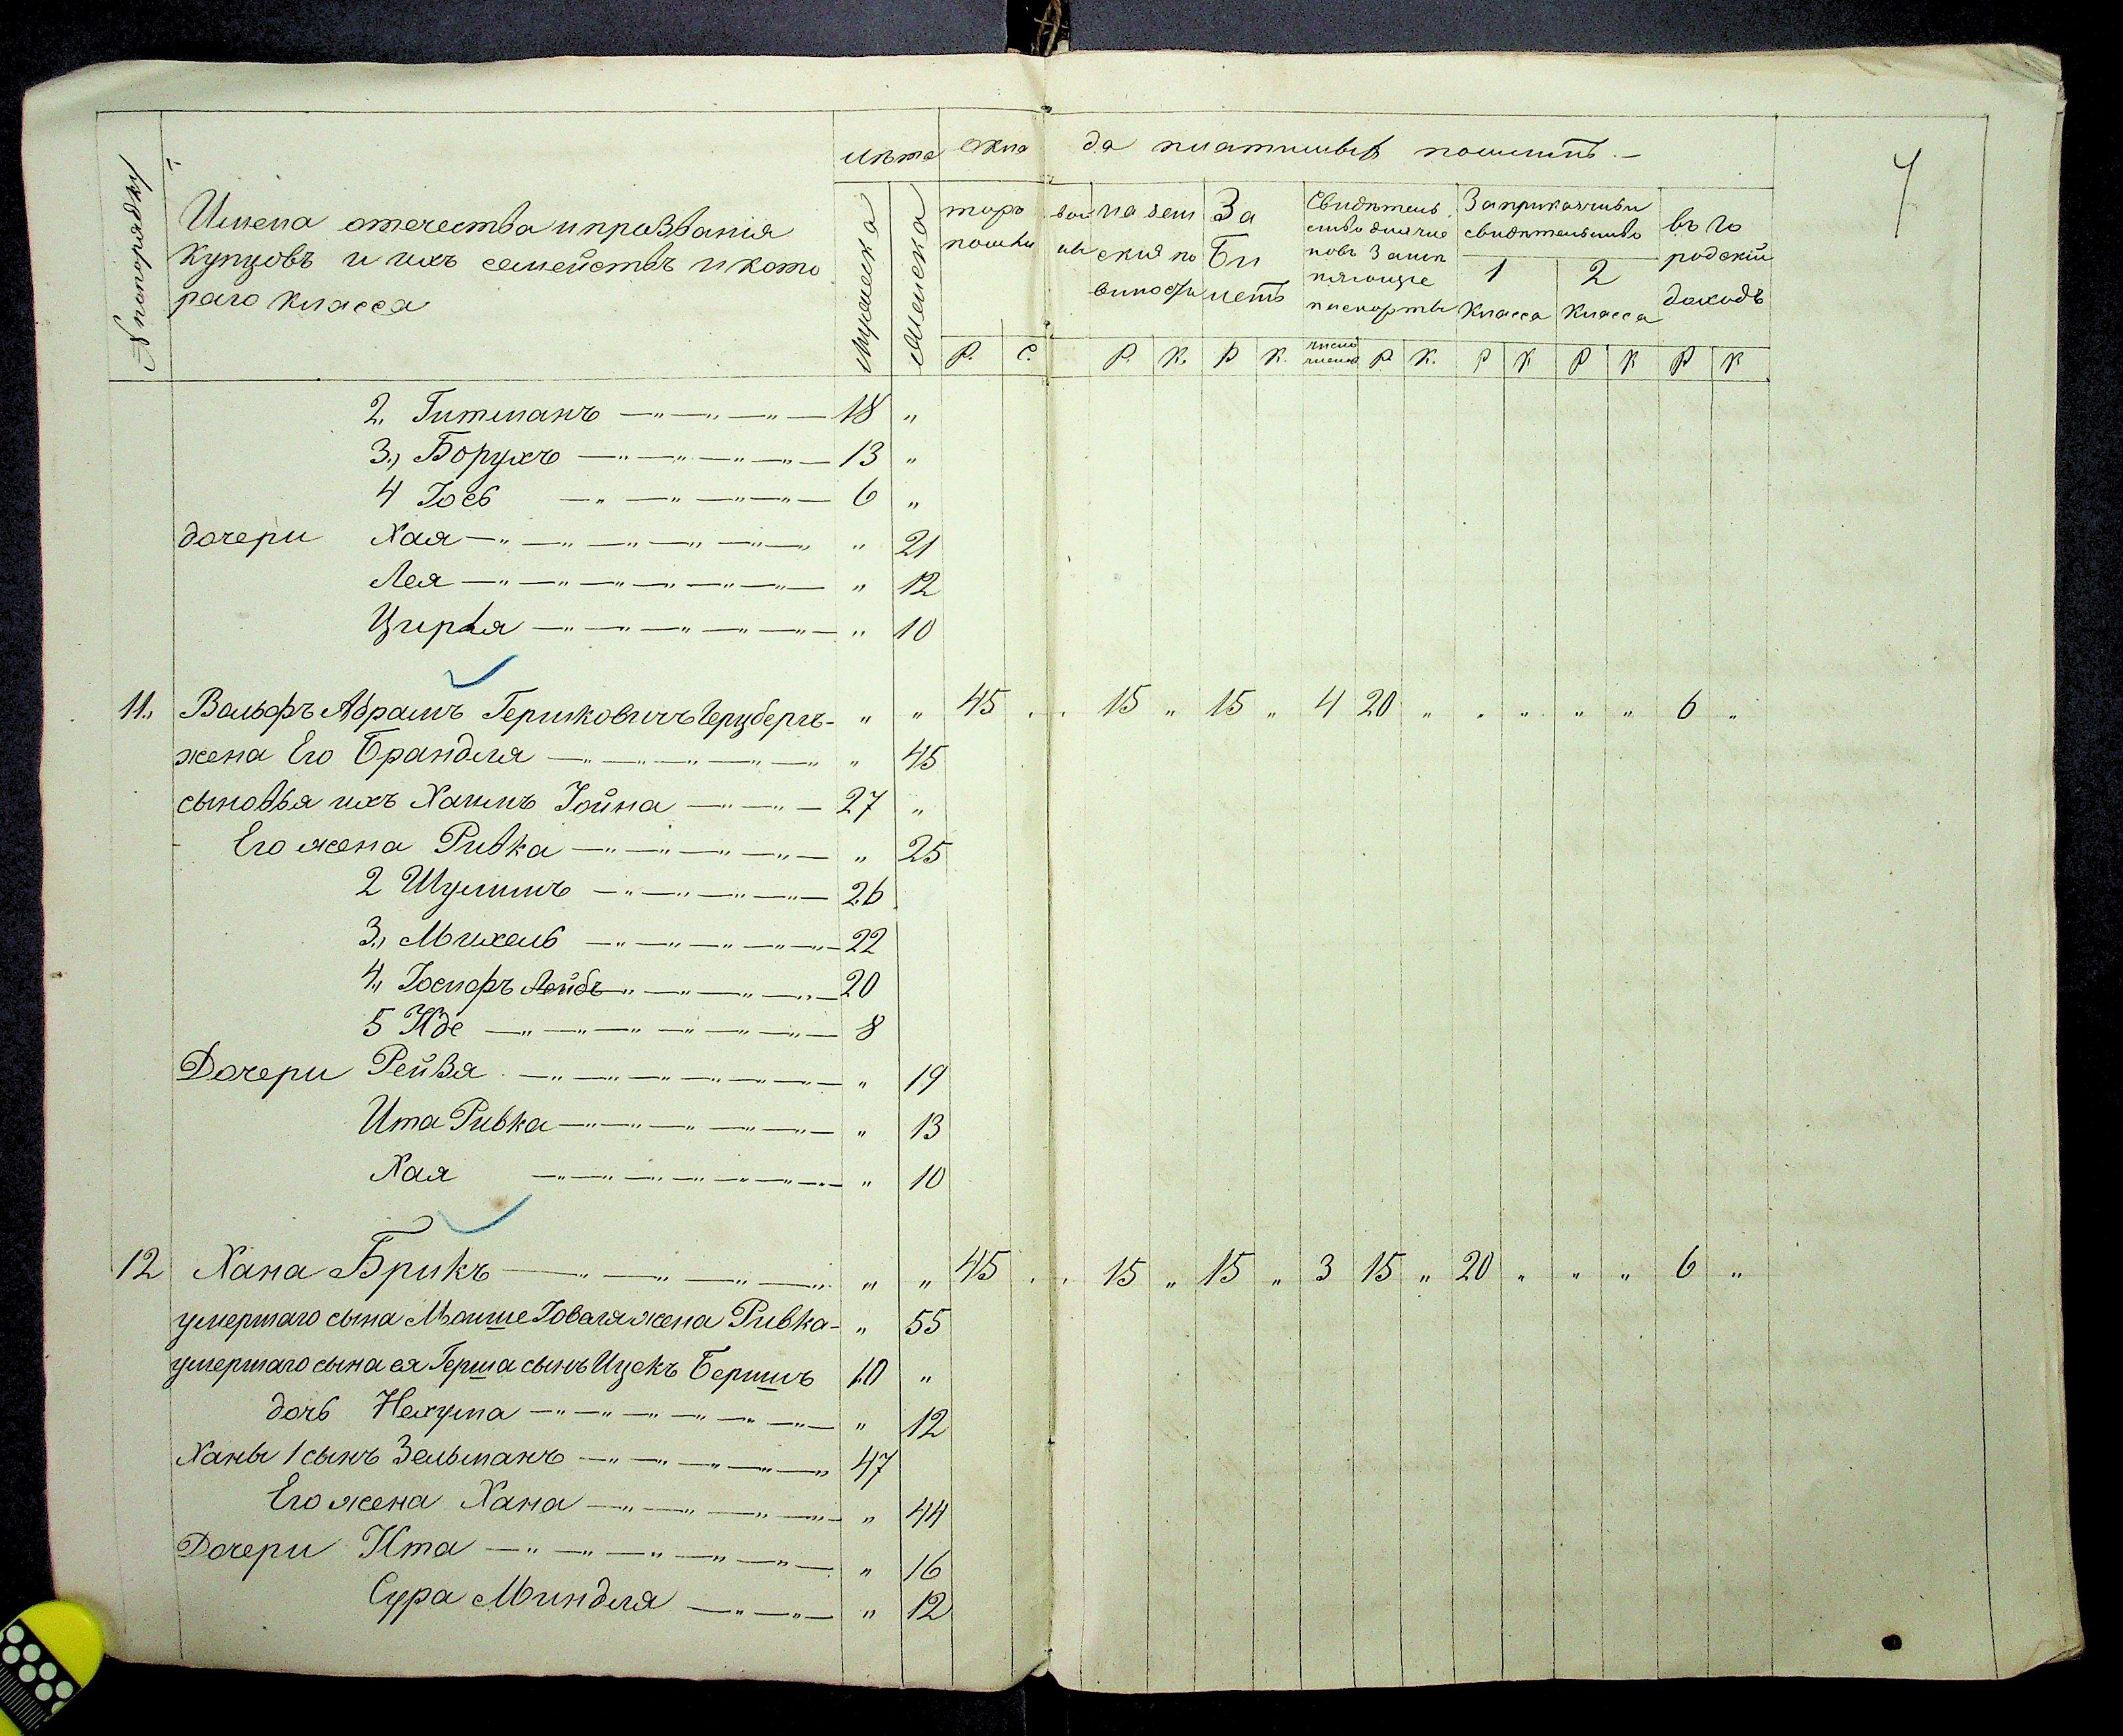 лѣта окла да платимыхъ пошлинъ. —
4
№ по порядку
Имена отечества и прозванія
купцовъ и ихъ семействъ и кото
раго класса
мужеска
женска
торго вой
пошли ны
Р. С.
на зем
ския по
винности
Р. К.
За
Би
летъ
Р К.
Свидѣтель
ство для чле
новъ Замѣ
няющіе
паспорты
число членов Р. К.
За прикащичьи
свидѣтельство
1 2
класса класса
Р К Р К
въ го
родскій
доходъ
Р К
2. Гитманъ — " — " — " — 18 "
3., Борухъ — " — " — " — " — 13 "
4 Іось — " — " — " — " — 6 "
дочери Хая — " — " — " — " — " — " " 21
Лея — " — " — " — " — " — " — " 12
Цирля — " — " — " — " — " — " 10
11., Вольфъ Абрамъ Гершковичъ Герцбергъ - " " 45 . . 15 " 15 " 4 20 " " " " " 6 "
жена Его Брандля — " — " — " — " — " " 45
сыновья ихъ Хаимъ Іойна — " — " — 27 "
Его жена Ривка — " — " — " — " — " 25
2 Шулимъ — " — " — " — " — 26
3., Михель — " — " — " — " — 22
4., Іосифъ Лейбъ — " — " — " — " — 20
5 Иде — " — " — " — " — " — " — 8
Дочери Рейзя — " — " — " — " — " — " — " 19
Ита Ривка — " — " — " — " — " — " 13
Хая — " — " — " — " — " — " — " 10
12 Хана Брикъ — " — " — " — " " " 45 . . 15 " 15 " 3 15 " 20 " " " 6 "
умершаго сына Мошше Говагя жена Ривка - " 55
умершаго сына ея Герша сынъ Ицекъ Бершъ 10 "
дочь Нехума — " — " — " — " — " — " 12
Ханы 1 сынъ Зельманъ — " — " — " — " — " 47
Его жена Хана — " — " — " — " — " 44
Дочери Ита — " — " — " — " — " — " 16
Сура Миндля — " — " — " 12